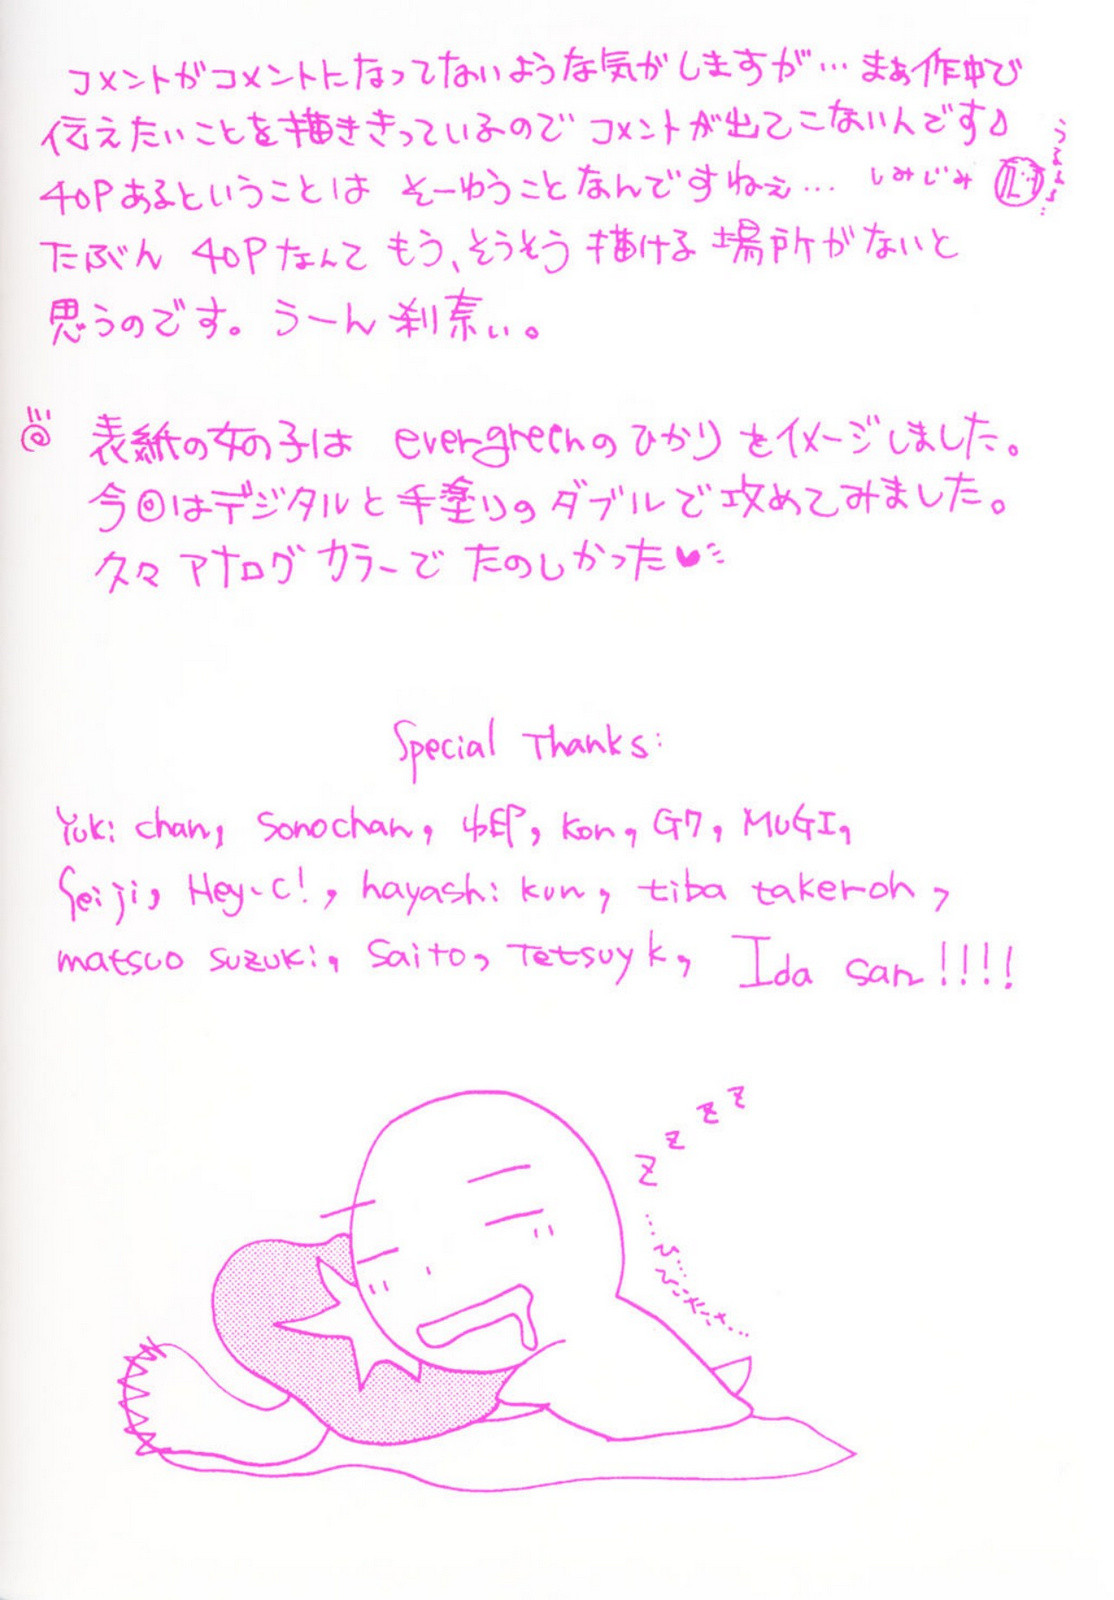 コメントがコメントになってないような気がしますが…まぁ作中で
伝えたいことを描ききっているのでコメントが出てこないんです♪
40Pあるということは そーゆうことなんですねぇ… しみじみ
たぶん 40Pなんて もう、そうそう描ける場所がないと
思うのです。うーん刹那ぃ。
表紙の女の子は evergreenのひかりをイメージしました。
今回はデジタルと手塗りのダブルで攻めてみました。
久々アナログカラーで たのしかった♥
Special Thanks:
Yuki chan, Sonochan, ゆEP, Kon, G7, MUGI,
Seiji, Hey-C!, hayashi kun, tiba takeroh,
matsuo suzuki, Saito, Tetsuyk, Ida san!!!!
z z z z